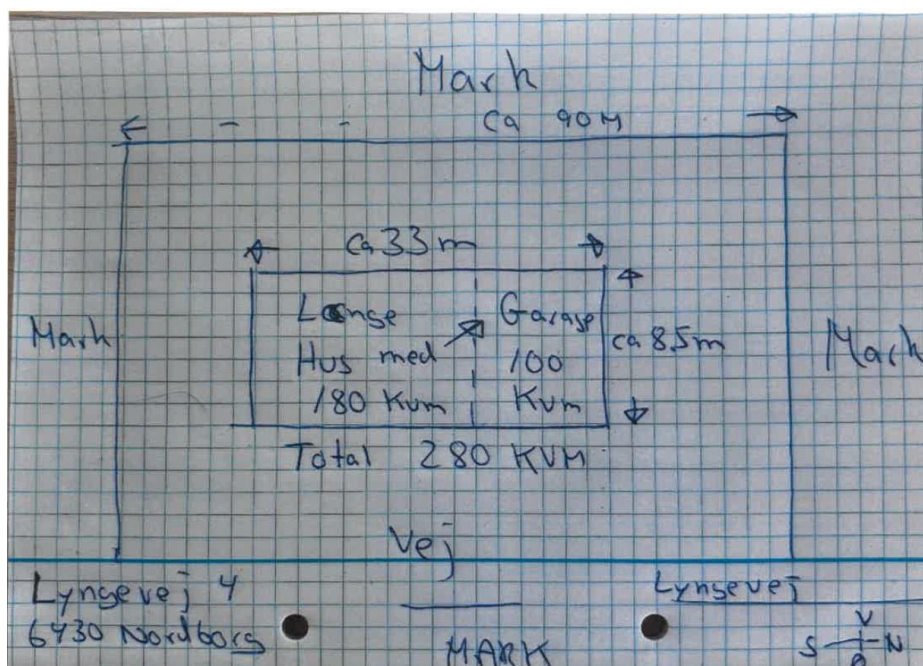 Mark
ca 90 M
ca 33 m
Mark
Længe
Hus med
180 Kvm
Garage
100
Kvm
ca 8,5 m
Mark
Total 280 KVM
Vej
Lyngevej 4
6430 Nordborg
Lyngevej
MARK
V
S N